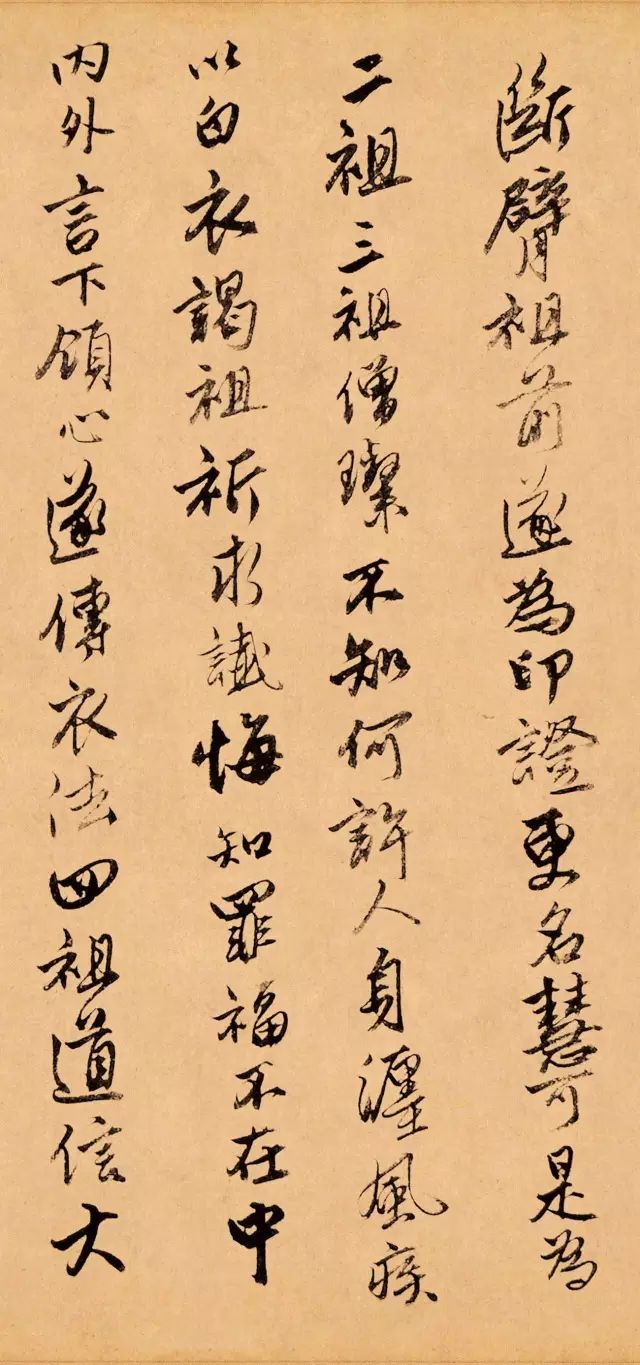 斷臂祖前遂為印證更名慧可是為
二祖三祖僧璨不知何許人身瀍風疾
以白衣謁祖祈求懴悔知罪福不在中
內外言下領心遂傳衣法四祖道信大